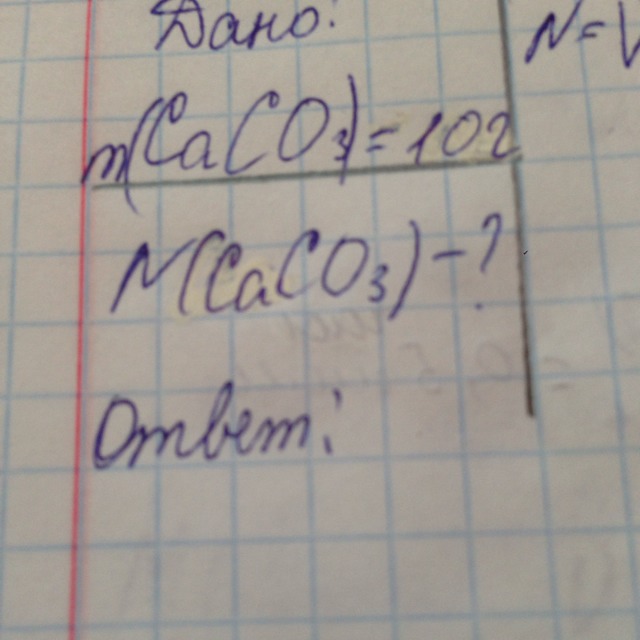 Дано:
N=V
m(CaCO₃)=10г
N(CaCO₃)-?
Ответ: